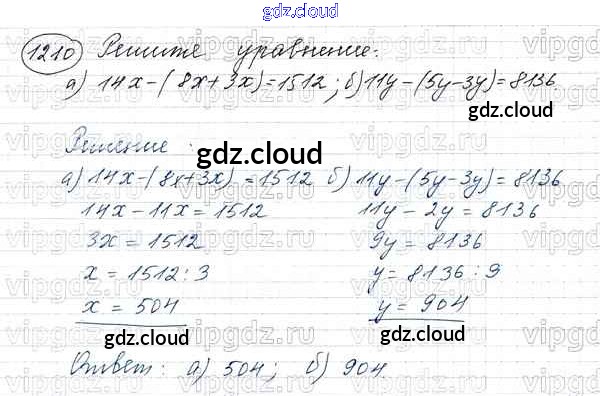 gdz.cloud
1210 Решите уравнение:
а) 14x-(8x+3x)=1512; б) 11y-(5y-3y)=8136.
gdz.cloud
Решение:
gdz.cloud
а) 14x-(8x+3x)=1512 б) 11y-(5y-3y)=8136
14x-11x=1512 11y-2y=8136
3x=1512 9y=8136
x=1512:3 y=8136:9
x=504 y=904
gdz.cloud gdz.cloud
Ответ: а) 504; б) 904
vipgdz.ru